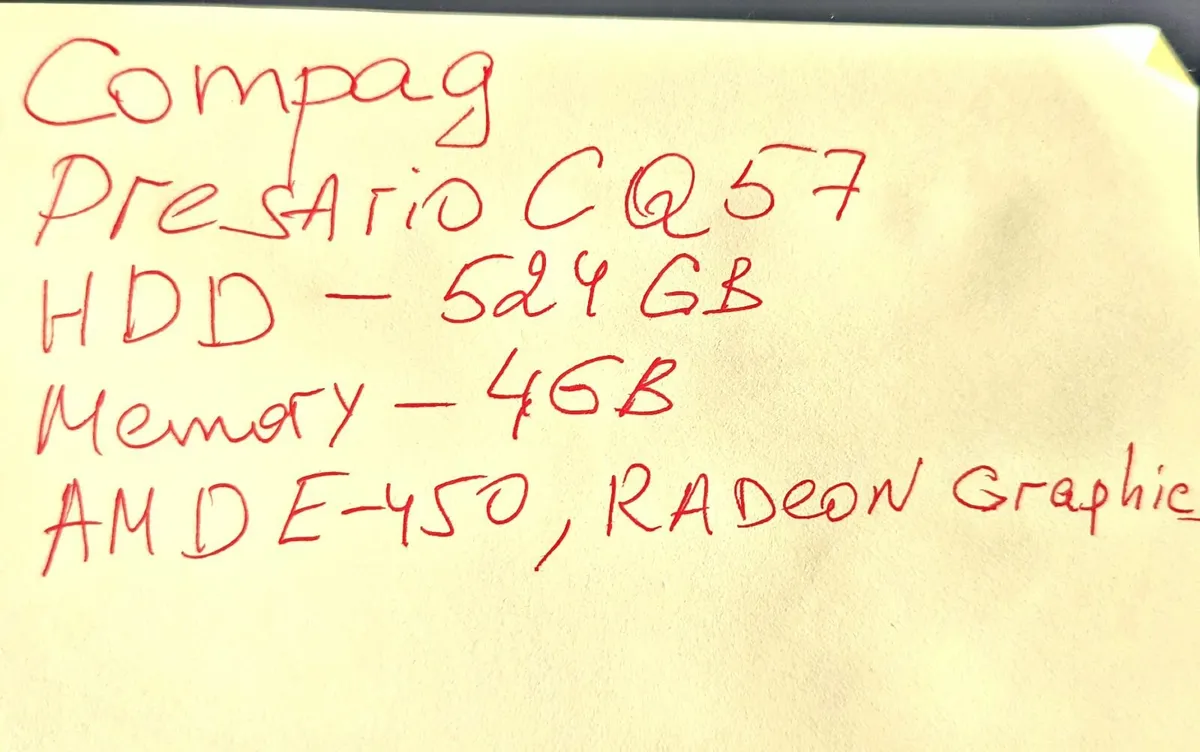 Compag
Presario CQ57
HDD - 524 GB
Memory - 4GB
AMD E-450, RADeoN Graphic